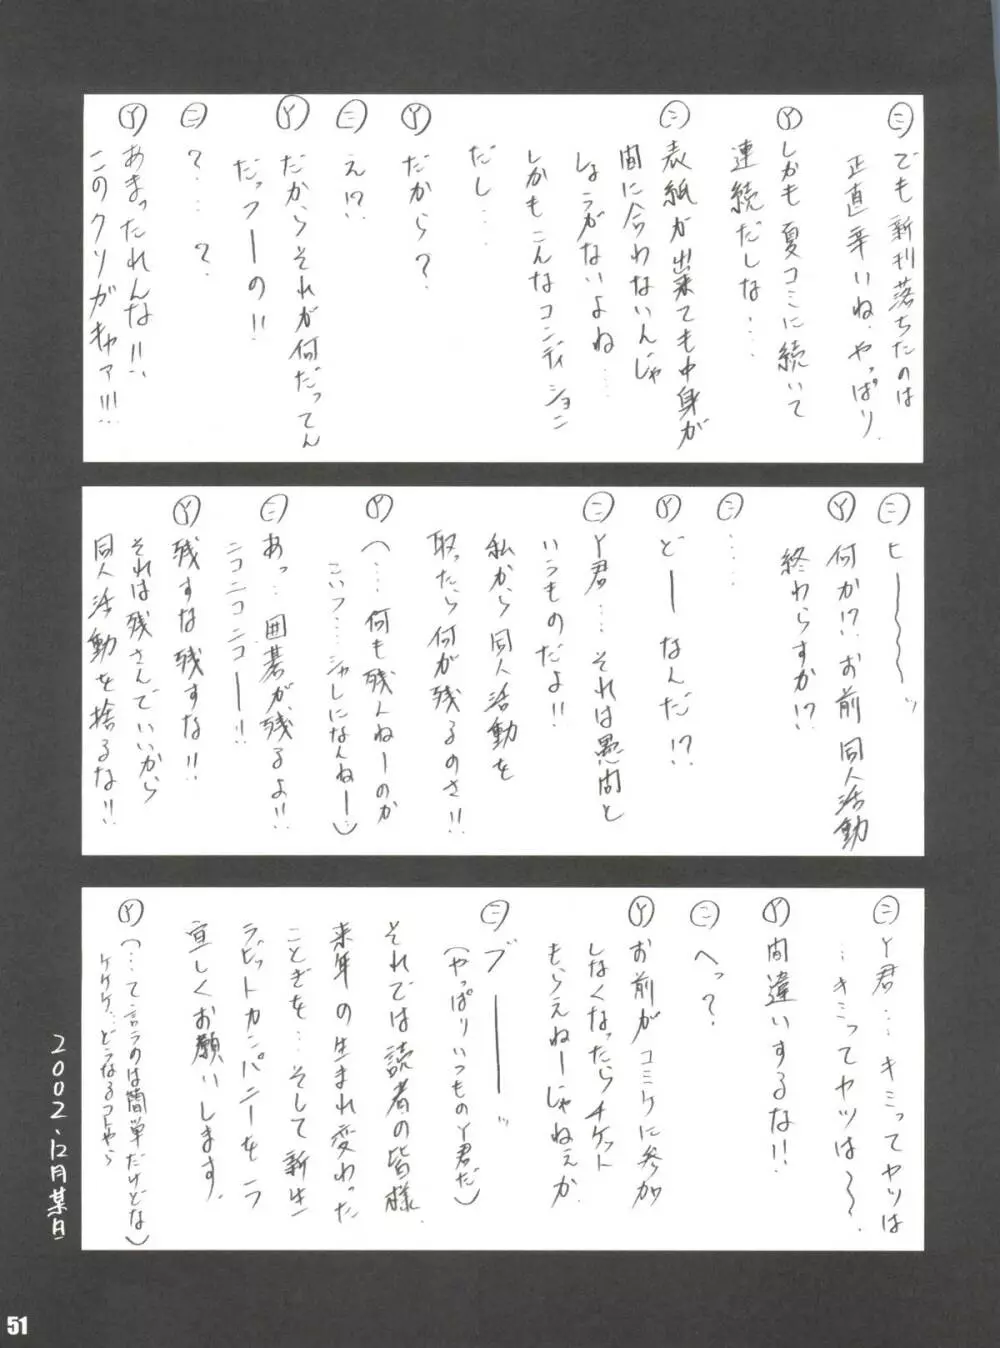 ㊁でも新刊落ちたのは
正直辛いね、やっぱり、
Ⓨしかも夏コミに続いて
連続だしな‥‥
㊁表紙が出来ても中身が
間に合わないんじゃ
しょうがないよね‥‥
しかもこんなコンディション
だし‥‥
Ⓨだから？
㊁え!?
Ⓨだからそれが何だってん
だっつーの!!
㊁？‥‥？
Ⓨあまったれんな!!
このクソガキャア!!!
㊁ヒ〜〜〜〜ッ
Ⓨ何か!?お前同人活動
終わらすか!?
㊁‥‥
Ⓨどーなんだ!?
㊁Y君‥‥それは愚問と
いうものだよ!!
私から同人活動を
取ったら何が残るのさ!!
Ⓨ(‥‥何も残んねーのか
こいつ‥‥シャレになんねー)
㊁あっ‥囲碁が残るよ!!
ニコニコニコー!!
Ⓨ残すな残すな!!
それは残さんでいいから
同人活動を捨るな!!
㊁Y君‥‥キミってヤツは
‥キミってヤツは〜〜、
Ⓨ間違いするな!!
㊁へっ？
Ⓨお前がコミケに参加
しなくなったらチケット
もらえねーじゃねぇか
㊁ブーーーッ
(やっぱりいつものY君だ)
それでは読者の皆様、
来年の生まれ変わった
ことぎを‥そして新生
ラビットカンパニーをヨ
宜しくお願いします。
Ⓨ(‥‥て言うのは簡単だけどな)
ケケケ‥どうなるコトやら
2002、12月某日
51